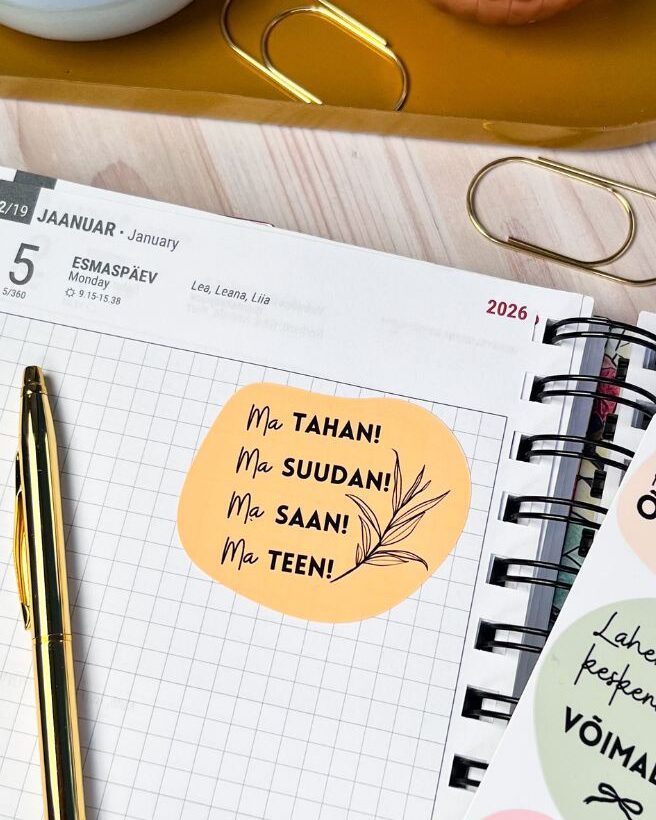 2/19 JAANUAR · January
5 ESMASPÄEV
Monday
5/360 9.15-15.38
Lea, Leana, Liia
2026
Ma TAHAN!
Ma SUUDAN!
Ma SAAN!
Ma TEEN!